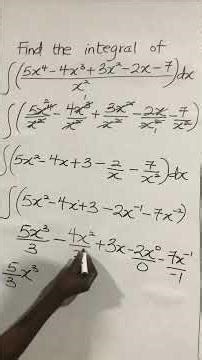 Find the integral of
∫(5x⁴-4x³+3x²-2x-7 / x²)dx
∫(5x⁴/x² - 4x³/x² + 3x²/x² - 2x/x² - 7/x²)
∫(5x²-4x+3-2/x-7/x²)dx
∫(5x²-4x+3-2x⁻¹-7x⁻²)
5x³/3 - 4x²/ +3x-2x⁰/0-7x⁻¹/-1
5/3x³